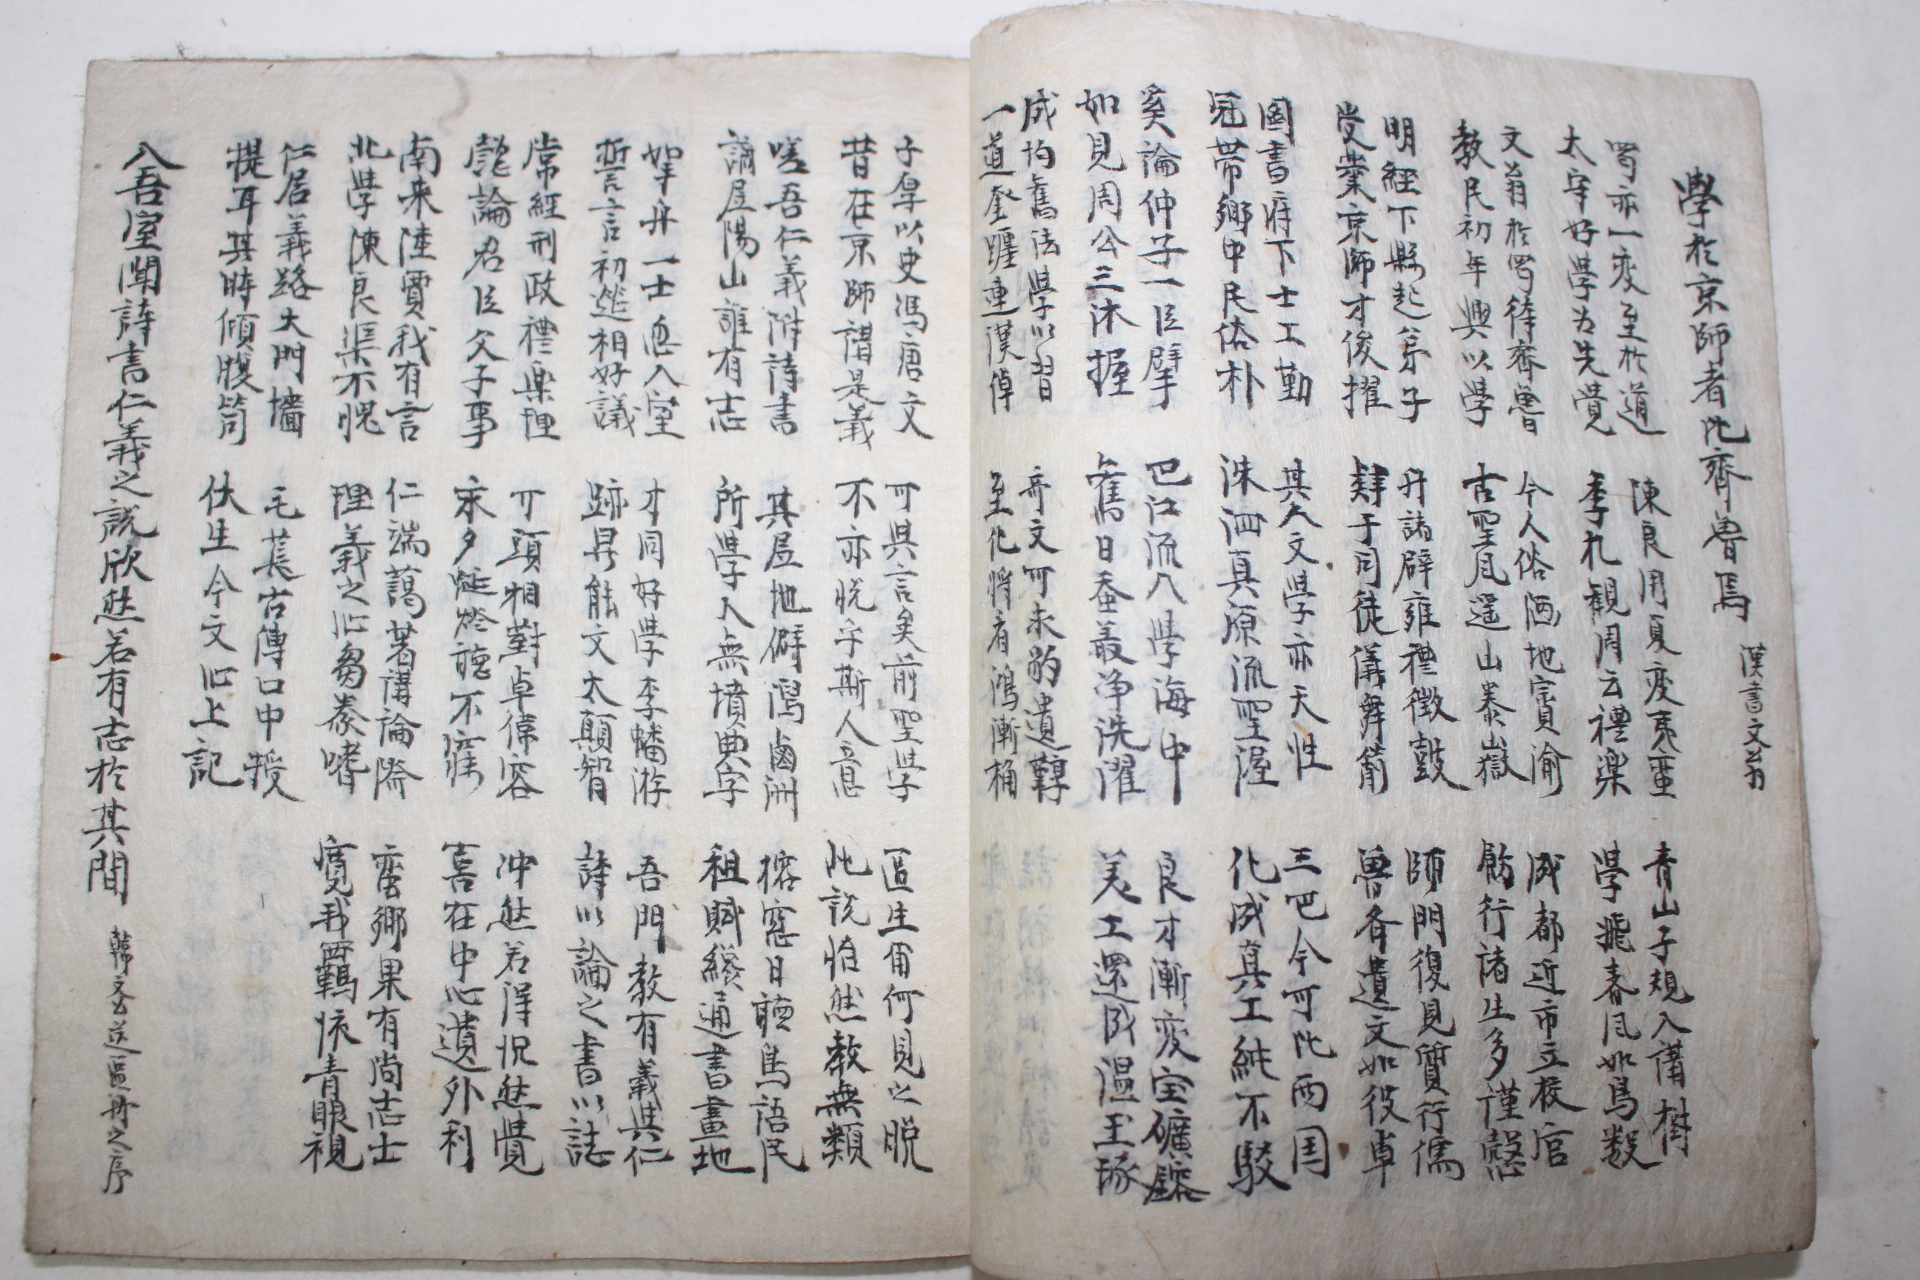 學於京師者比齊魯焉 漢書文翁
蜀亦一變至於道 陳良用夏變夷蠻 青山子規入講樹
太守好學為先覺 季札觀周云禮樂 學飛春風如鳥數
文翁於蜀待齊魯 今人俗洒地賨渝 成都近市立校官
教民初年興以學 古聖風遥山泰嶽 飭行諸生多謹慤
明經下縣起弟子 升諸辟雍禮徵鼓 師門復見質行儒
受業京師才俊擢 肄于同徒儀舞箾 魯各遺文如役卓
圖書府下士工勤 其人文學亦天性 三巴今可比西周
冠帶鄉中民俗朴 洙泗真原流聖渥 化成真工純不駁
奚論仲子一臣擘 巴江流入學海中 良才漸變宝礦鎔
如見周公三沐握 舊日蚕叢净洗濯 美工還成温玉琢
成均舊法學以習 奇文可求豹遺鞟
一道奎躔連漢倬 至化將看鴻漸桷
子厚以史馮唐文 可與言矣前聖學 區生甫何見之脱
昔在京師講是義 不亦悅乎斯人意 此説怡然教無類
嗟吾仁義附詩書 其居地僻瀉鹵洲 榕窓日聽鳥語民
謫居陽山誰有志 所學人無墳典字 租賦纔通書畫地
挐舟一士忽入室 才同好學李蟠游 吾門教有義與仁
誓言初逝相好議 跡异能文太顛智 詩以論之書以誌
常經刑政禮樂理 可頭相對卓偉容 冲然若得怳然覺
龍論君臣父子事 永夕蜓燈聽不寐 喜在中心遺外利
南来陸賈我有言 仁端藹著講論際 蛮鄉果有尚志士
北學陳良渠不愧 理義之心芻豢嗜 寬我羈懷青眼視
仁居義路大門墻 毛萇古傳口中授
提耳其時傾腹笥 伏生今文心上記
入吾室聞詩書仁義之說欣然若有志於其間 韓文公送區册之序